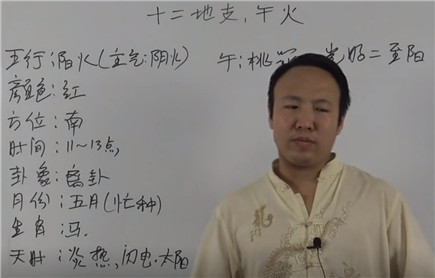 十二地支,午火
五行:阳火(主气:阴火)
午:桃 光明二至阳
颜色:红
方位:南
时间:11~13点,
卦象:离卦
月份:五月(忙种)
生肖:马.
天时:炎热,闪电.太阳